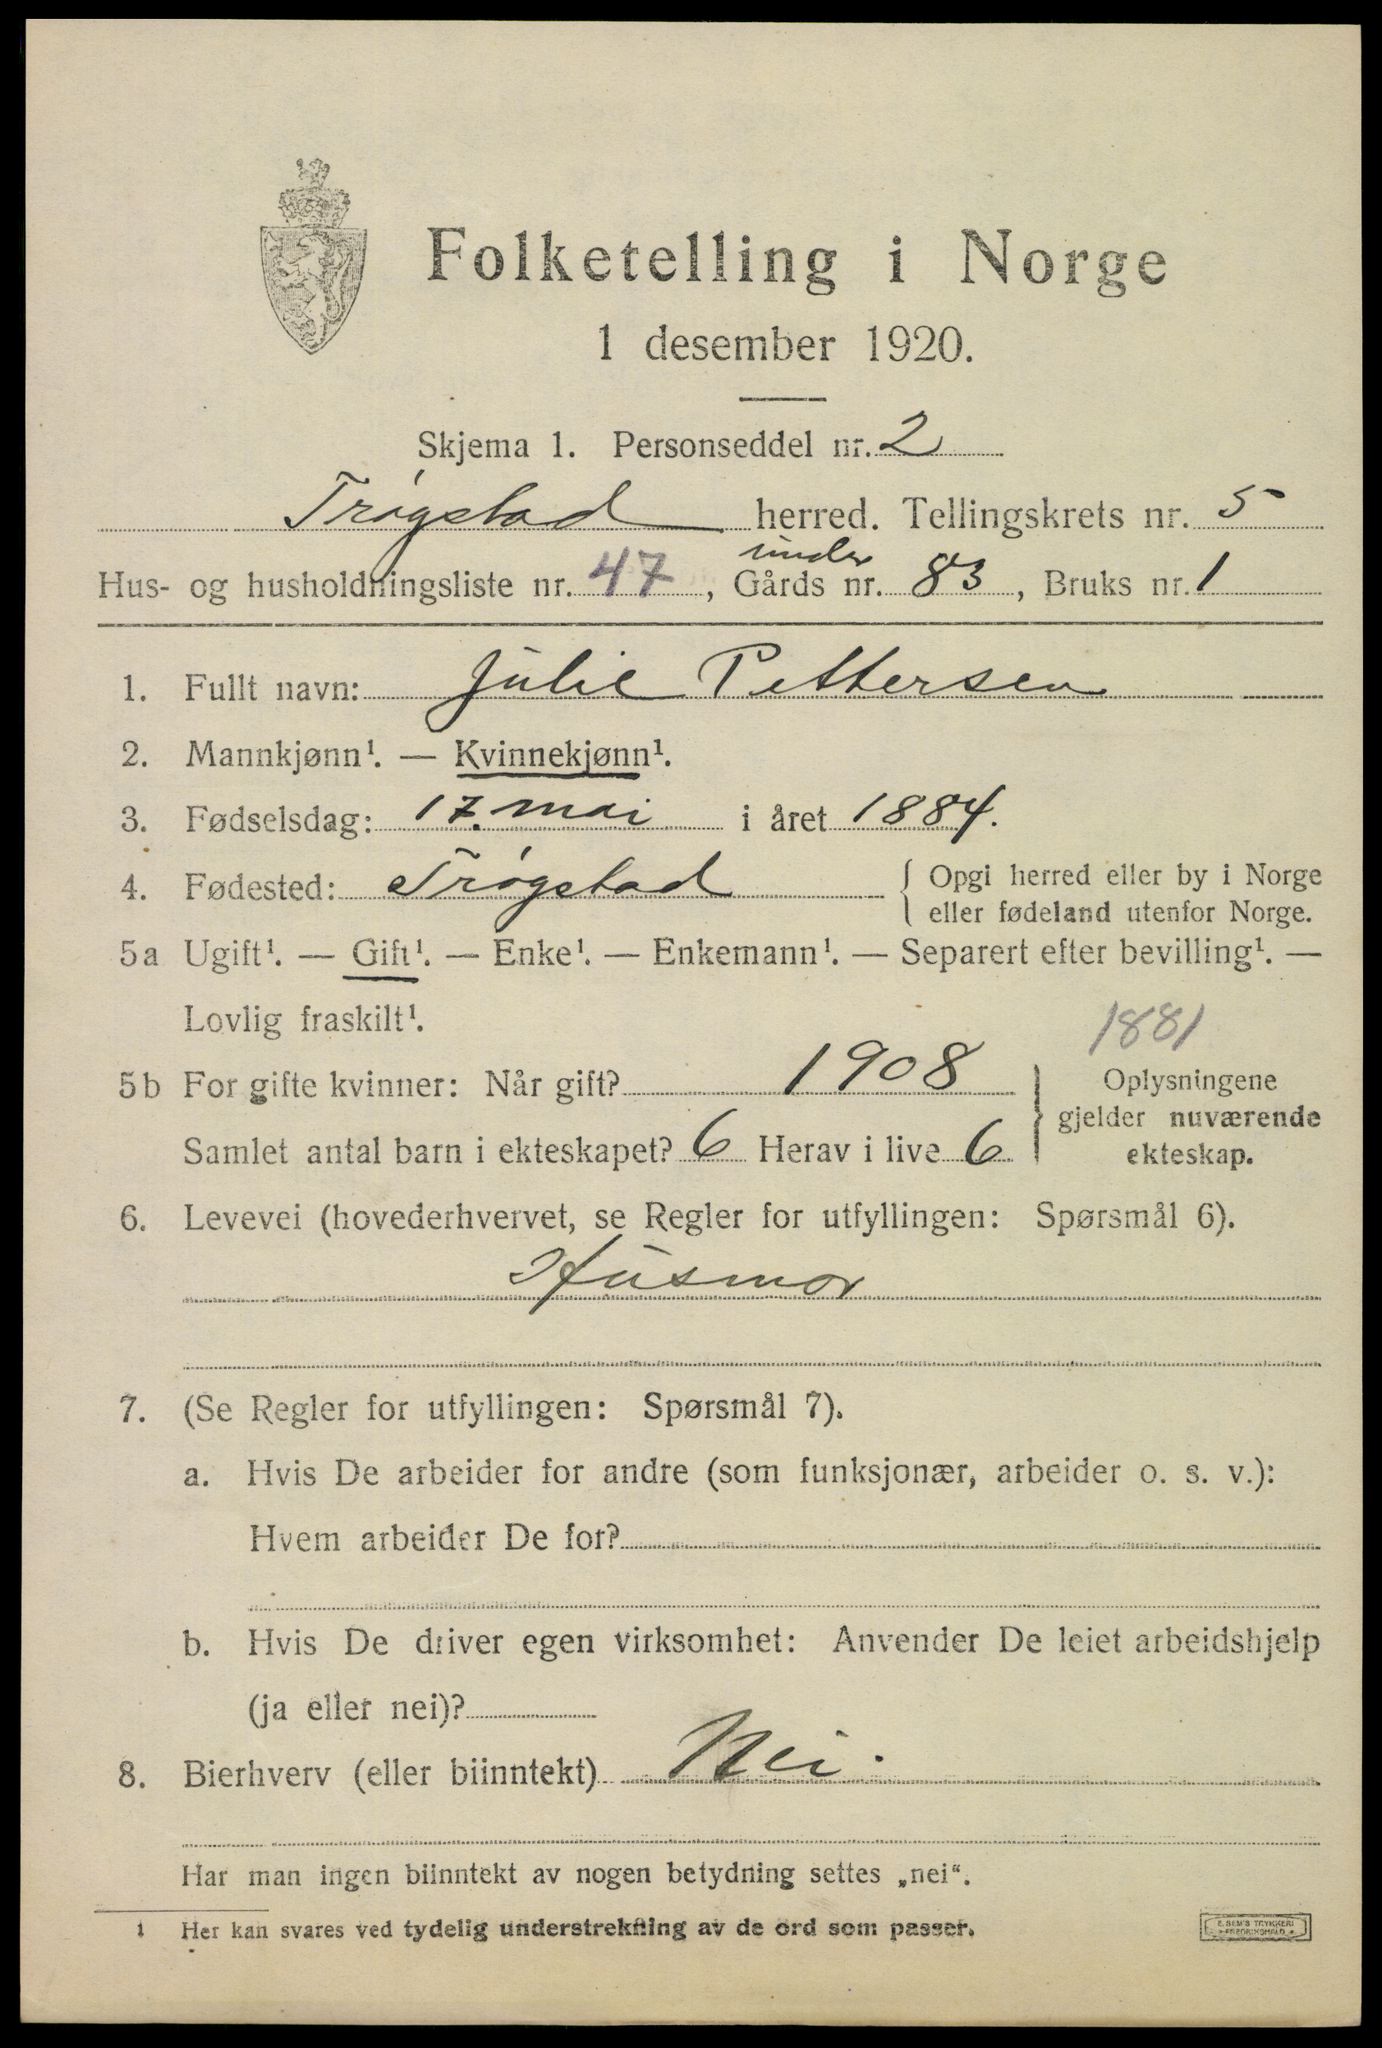 Folketelling i Norge
1 desember 1920.
Skjema 1. Personseddel nr. 2
Trøgstad herred. Tellingskrets nr. 5
under
Hus- og husholdningsliste nr. 47, Gårds nr. 83, Bruks nr. 1
1. Fullt navn: Julie Pettersen
2. Mannkjønn¹. — Kvinnekjønn¹.
3. Fødselsdag: 17. mai i året 1884.
4. Fødested: Trøgstad { Opgi herred eller by i Norge
eller fødeland utenfor Norge.
5a Ugift¹. — Gift¹. — Enke¹. — Enkemann¹. — Separert efter bevilling¹. —
Lovlig fraskilt¹.
1881
5b For gifte kvinner: Når gift? 1908
Samlet antal barn i ekteskapet? 6 Herav i live 6
} Oplysningene
gjelder nuværende
ekteskap.
6. Levevei (hovederhvervet, se Regler for utfyllingen: Spørsmål 6).
Husmor
7. (Se Regler for utfyllingen: Spørsmål 7).
a. Hvis De arbeider for andre (som funksjonær, arbeider o. s. v.):
Hvem arbeider De for?
b. Hvis De driver egen virksomhet: Anvender De leiet arbeidshjelp
(ja eller nei)?
8. Bierhverv (eller biinntekt) Nei.
Har man ingen biinntekt av nogen betydning settes „nei“.
¹ Her kan svares ved tydelig understrekning av de ord som passer.
E. SEM'S TRYKKERI
FREDRIKSHALD